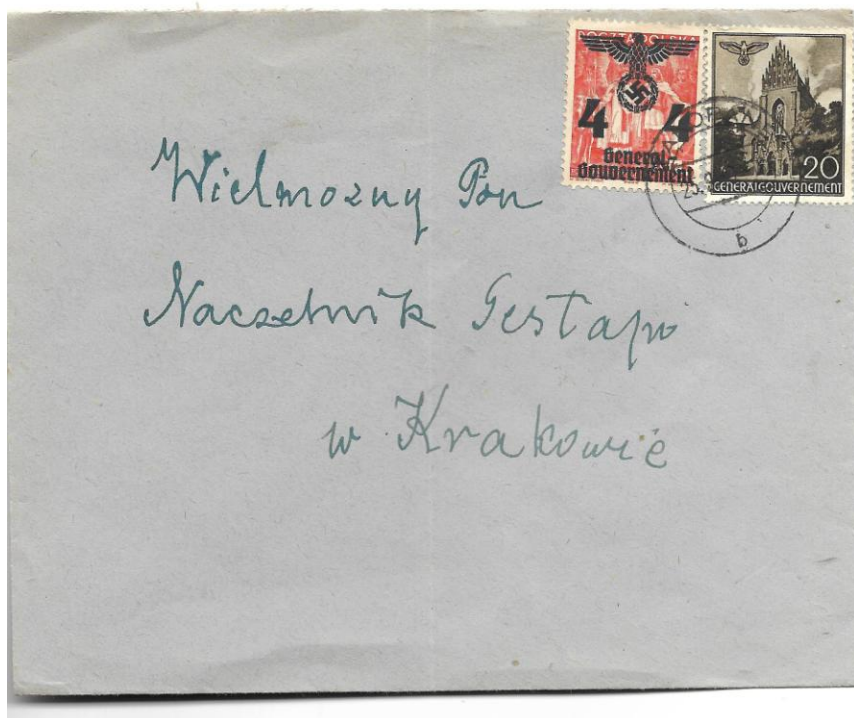 POCZTA POLSKA
4 4
General-
Gouvernement
20
GENERALGOUVERNEMENT
b
Wielmozny Pan
Naczelnik Gestapo
w Krakowie